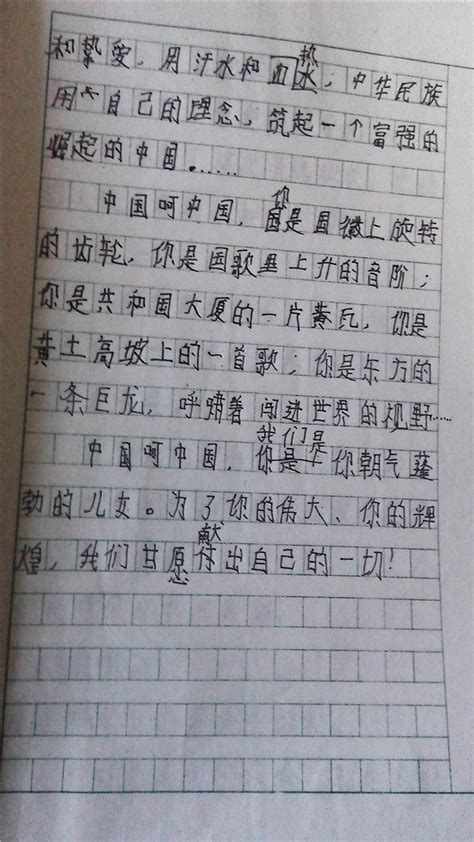 和挚爱，用汗水和血热水；中华民族
用自己的理念，筑起一个富强的
崛起的中国……
中国呵中国，你是国徽上旋转
的齿轮，你是国歌里上升的音阶；
你是共和国大厦的一片黄瓦，你是
黄土高坡上的一首歌；你是东方的
一条巨龙，呼啸着闯进世界的视野……
中国呵中国，我们是你朝气蓬
勃的儿女。为了你的伟大、你的辉
煌，我们甘愿献出自己的一切！